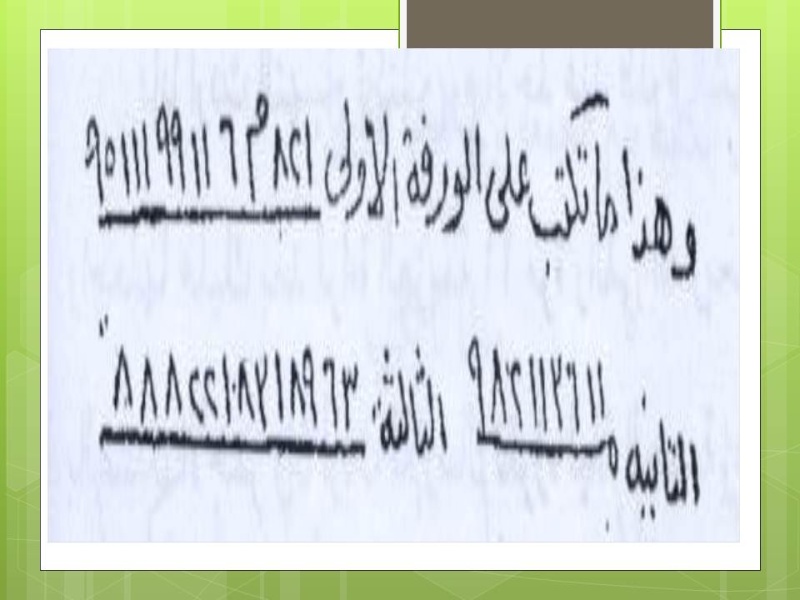 وهذا ما تكتب على الورقة الأولى ٩٥١١١٩٩١١٦٣م٨٢١
الثانيه ٩٨٢١١٢٦١١٥ الثالثة ٨٨٨٢٢١٠٨٢١٨٩٦٣